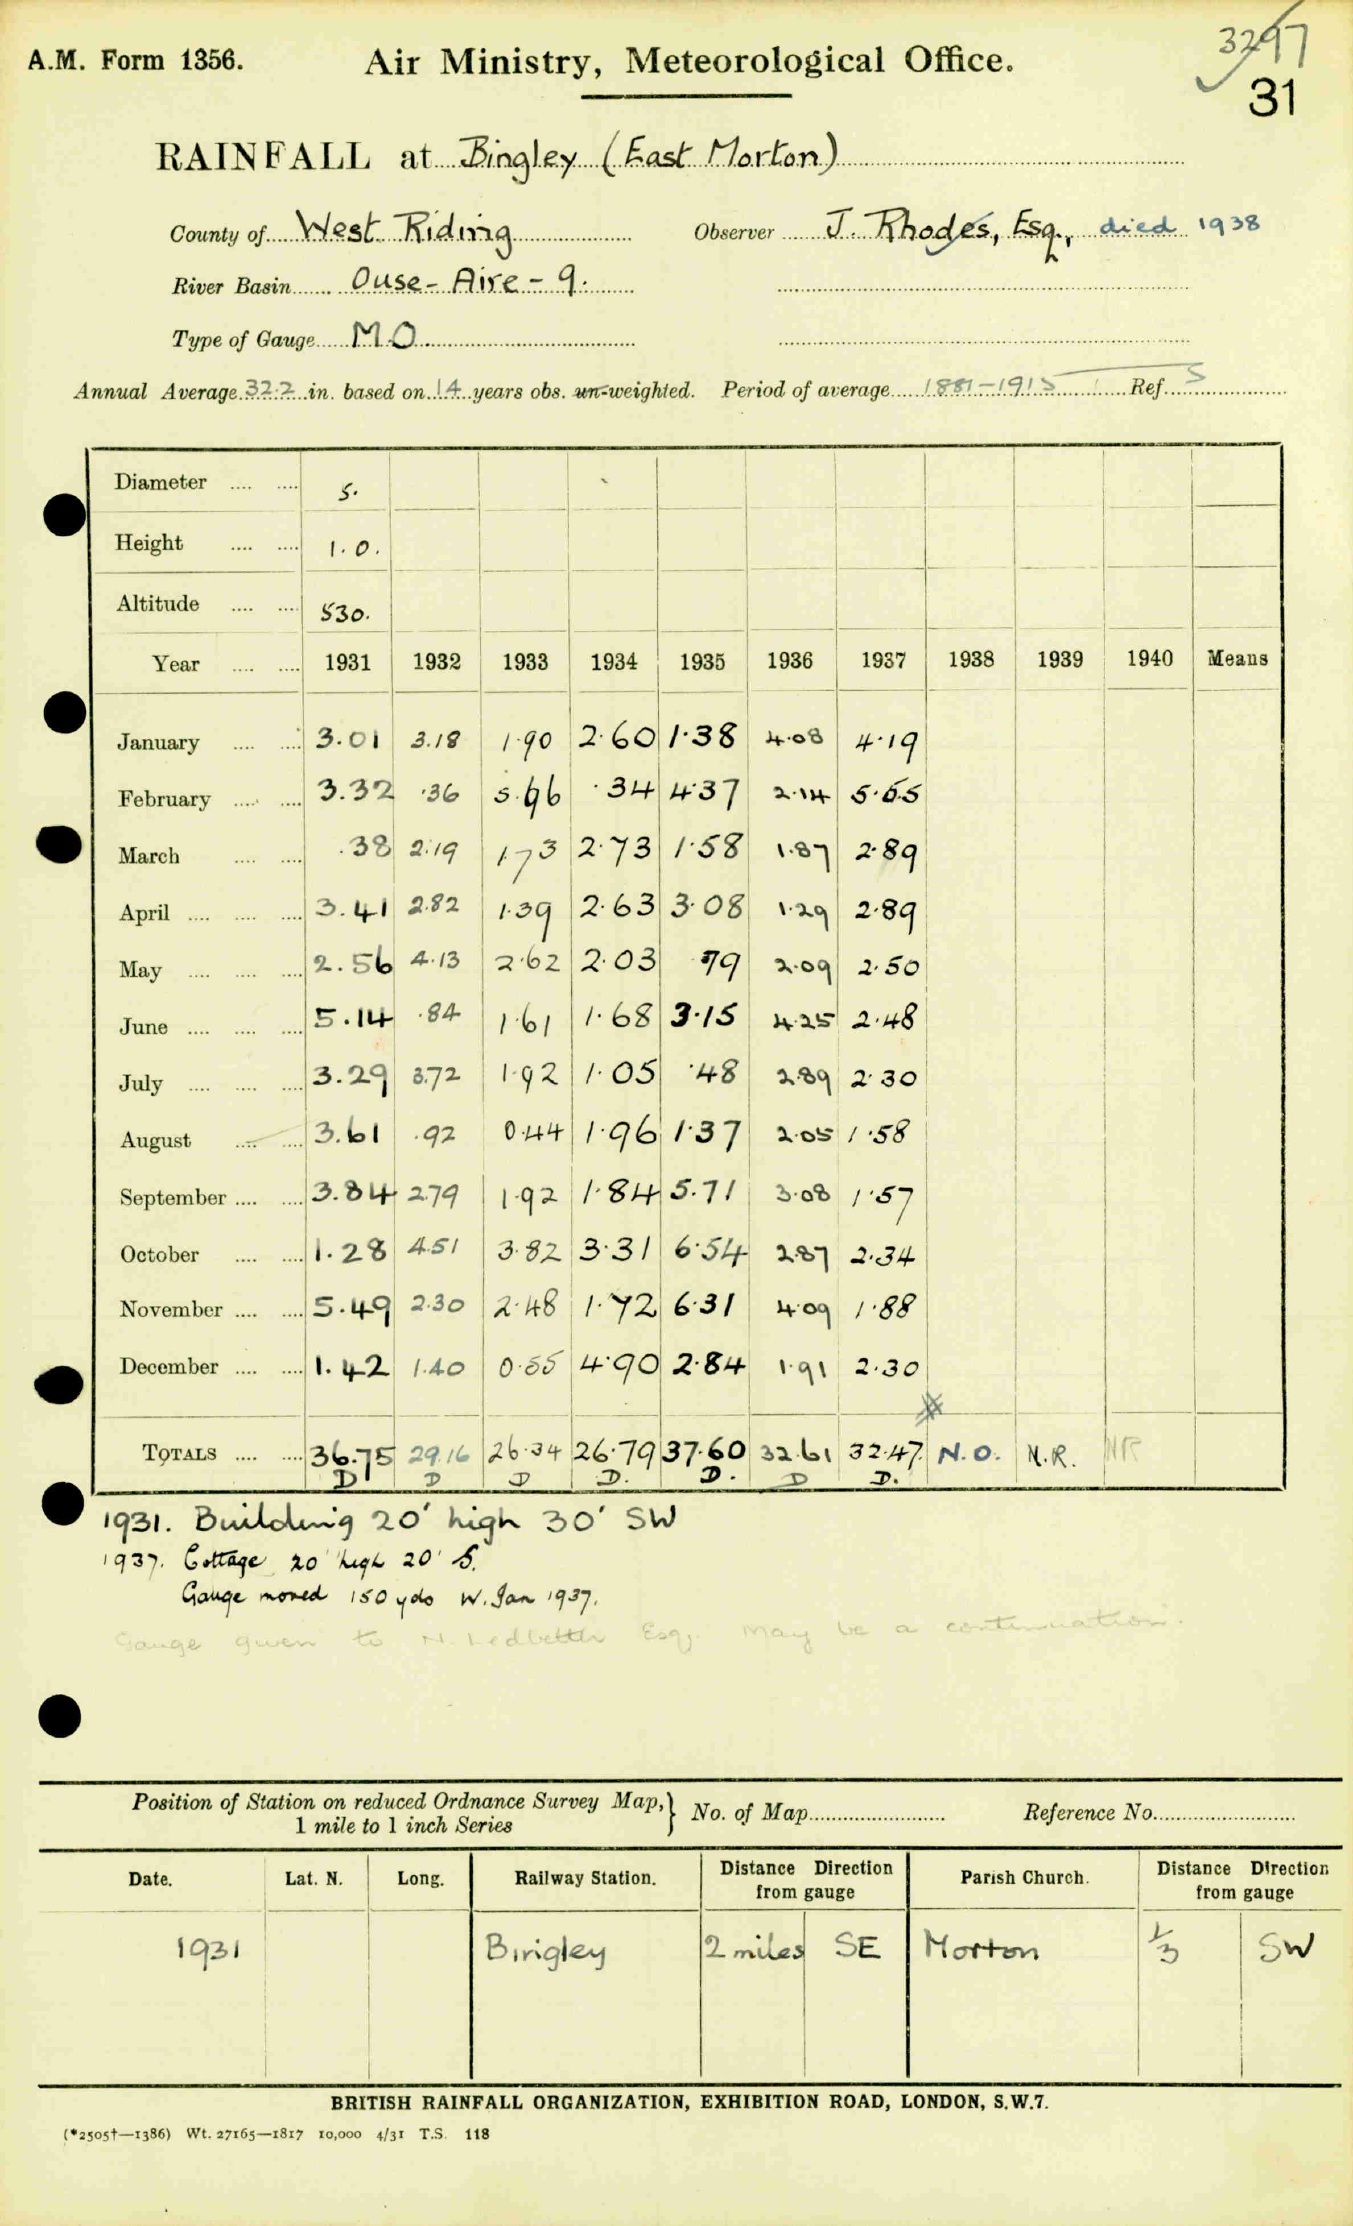 3297
31
A.M. Form 1356.
Air Ministry, Meteorological Office.
RAINFALL at Bingley (East Morton)
County of West Riding Observer J. Rhodes, Esq., died 1938
River Basin Ouse - Aire - 9.
Type of Gauge M.O.
Annual Average 32.2 in. based on 14 years obs. un-weighted. Period of average 1881-1915 Ref. S
Diameter .... .... 5.
Height .... .... 1.0.
Altitude .... .... 530.
Year .... .... 1931 1932 1933 1934 1935 1936 1937 1938 1939 1940 Means
January .... .... 3.01 3.18 1.90 2.60 1.38 4.08 4.19
February .... .... 3.32 .36 5.96 .34 4.37 2.14 5.55
March .... .... .38 2.19 1.73 2.73 1.58 1.87 2.89
April .... .... .... 3.41 2.82 1.39 2.63 3.08 1.29 2.89
May .... .... .... 2.56 4.13 2.62 2.03 .79 2.09 2.50
June .... .... .... 5.14 .84 1.61 1.68 3.15 4.25 2.48
July .... .... .... 3.29 3.72 1.92 1.05 .48 2.89 2.30
August .... .... 3.61 .92 0.44 1.96 1.37 2.05 1.58
September .... .... 3.84 2.79 1.92 1.84 5.71 3.08 1.57
October .... .... 1.28 4.51 3.82 3.31 6.54 2.87 2.34
November .... .... 5.49 2.30 2.48 1.72 6.31 4.09 1.88
December .... .... 1.42 1.40 0.55 4.90 2.84 1.91 2.30
TOTALS .... .... 36.75 29.16 26.34 26.79 37.60 32.61 32.47 N.O. N.R. NR
D D D D. D. D D.
1931. Building 20' high 30' SW
1937. Cottage 20' high 20' S.
Gauge moved 150 yds W. Jan 1937.
Gauge given to N. Ledbetter Esq. May be a continuation.
Position of Station on reduced Ordnance Survey Map, } No. of Map Reference No.
1 mile to 1 inch Series
Date. Lat. N. Long. Railway Station. Distance Direction from gauge Parish Church. Distance Direction from gauge
1931 Bingley 2 miles SE Morton 1/3 SW
BRITISH RAINFALL ORGANIZATION, EXHIBITION ROAD, LONDON, S.W.7.
(*2505†—1386) Wt. 27165—1817 10,000 4/31 T.S. 118